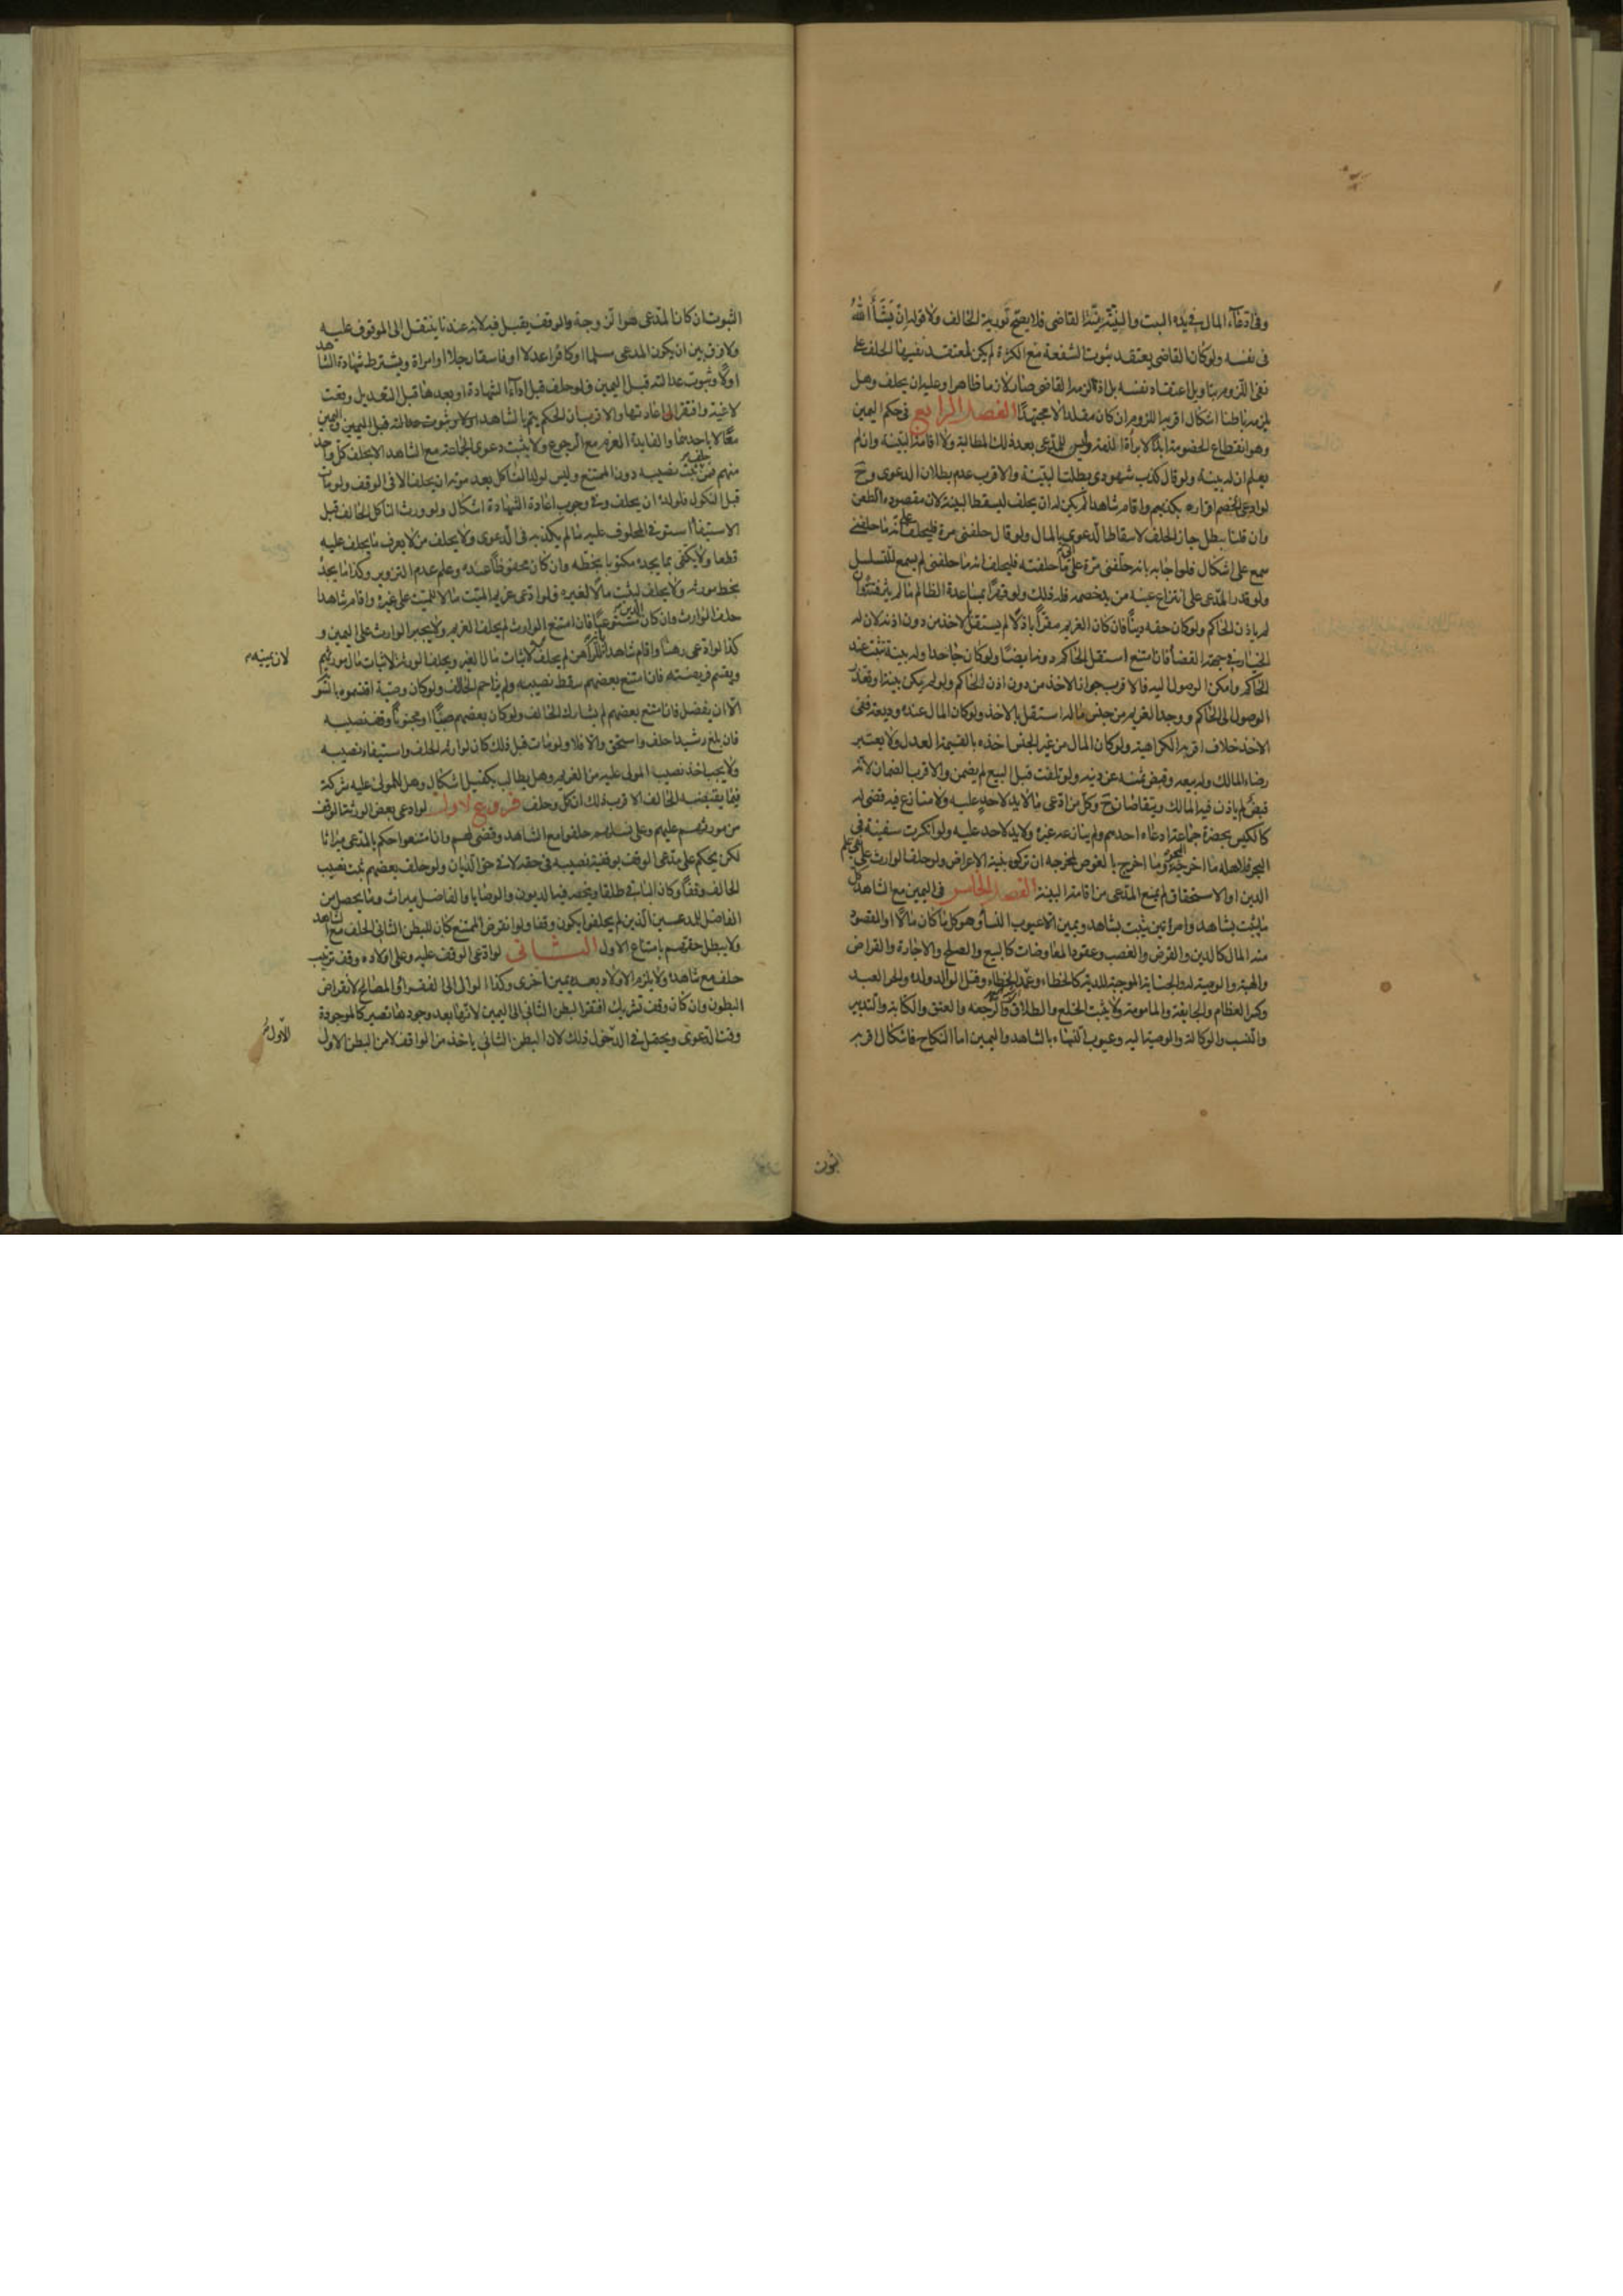 وفى ادعاء المال فى يده البت والنية نية القاضى فلا يصح تورية الحالف ولا قوله ان يشأ الله
فى نفسه ولو كان القاضى يعتقد ثبوت الشفعة مع الكثرة لم يكن لمعتقد نفيها الحلف على
نفى اللزوم بتاويل اعتقاد نفسه بل اذا الزمه القاضى صار لازما ظاهرا وعليه ان يحلف وهل
يلزمه باطنا اشكال اقربه اللزوم ان كان مقلدا لا مجتهدا الفصل الرابع فى حكم اليمين
وهو انقطاع الخصومة ابدا لا براءة الذمة وليس للمدعى بعد ذلك المطالبة ولا اقامة البينة وان لم
يعلم ان له بينة ولو قال كذب شهودى بطلت البينة والاقرب عدم بطلان الدعوى وح
لو ادعى الخصم اقراره بكذبهم واقام شاهدا لم يكن له ان يحلف ليسقط البينة لان مقصوده الطعن
وان قلنا يبطل جاز الحلف لاسقاط الدعوى بالمال ولو قال حلفنى مرة فليحلف على انه ما حلفنى
سمع على اشكال فلو اجابه بانه حلفنى مرة على انى ما حلفته فليحلف انه ما حلفنى لم يسمع للتسلسل
ولو قدر المدعى على انتزاع عينه من يد خصمه فله ذلك ولو قهرا بمساعدة الظالم ما لم يثر فتنة وان
لم ياذن الحاكم ولو كان حقه دينا فان كان الغريم مقرا باذلا لم يستقل لاخذ من دون اذنه لان له
الخيار فى جهة القضاء فان امتنع استقل الحاكم دونه ايضا ولو كان جاحدا وله بينة تثبت عند
الحاكم وامكن الوصول اليه فالاقرب جواز الاخذ من دون اذن الحاكم ولو لم يكن بينة او تعذر
الوصول الى الحاكم ووجد الغريم من جنس ماله استقل بالاخذ ولو كان المال عنده وديعة ففى
الاخذ خلاف اقربه الكراهية ولو كان المال من غير الجنس اخذه بالقيمة العدل ولا يعتبر
رضاء المالك وله بيعه وقبض ثمنه عن دينه ولو تلفت قبل البيع لم يضمن والاقرب الضمان لانه
قبض لم ياذن فيه المالك ويتقاصان ح وكل من ادعى ما لا يد لاحد عليه ولا منازع فيه قضى له
كالكيس بحضرة جماعة ادعاه احدهم ولم ينازعه غيره ولا يد لاحد عليه ولو انكسرت سفينة فى
البحر فلاهله ما اخرجه البحر وما اخرج بالغوص لمخرجه ان تركوه بنية الاعراض ولو حلف الوارث على نفى علم
الدين او الاستحقاق لم يمنع المدعى من اقامة البينة الفصل الخامس فى اليمين مع الشاهد كل
ما يثبت بشاهد وامراتين يثبت بشاهد ويمين الا عيوب النساء وهو كل ما كان مالا او المقصود
منه المال كالدين والقرض والغصب وعقود المعاوضات كالبيع والصلح والاجارة والقراض
والهبة والوصية له والجناية الموجبة للدية كالخطاء وعمد الخطاء وقتل الوالد ولده والحر العبد
وكسر العظام والجايفة والمامومة ولا يثبت الخلع والطلاق والرجعة والعتق والكتابة والتدبير
والنسب والوكالة والوصية اليه وعيوب النساء بالشاهد واليمين اما النكاح فاشكال اقربه
الثبوت
الثبوت ان كان المدعى هو الزوجة والوقف يقبل فيه لانه عندنا ينتقل الى الموقوف عليه
ولا فرق بين ان يكون المدعى مسلما او كافرا عدلا او فاسقا رجلا او امراة ويشترط شهادة الشاهد
اولا وثبوت عدالته قبل اليمين فلو حلف قبل اداء الشهادة او بعدها قبل التعديل وقعت
لاغية وافتقر الى اعادتها والاقرب ان الحكم يتم بالشاهد اولا وثبوت عدالته قبل اليمين واليمين
معا لا باحدهما والفايدة الغرم مع الرجوع ولا يثبت دعوى الجماعة مع الشاهد الا بحلف كل واحد
منهم فمن حلف يثبت نصيبه دون الممتنع وليس لولد الناكل بعد موته ان يحلف الا فى الوقف ولو مات
قبل النكول فلولده ان يحلف وفى وجوب اعادة الشهادة اشكال ولو ورث الناكل الحالف قبل
الاستيفاء استوفى المحلوف عليه ما لم يكذبه فى الدعوى ولا يحلف من لا يعرف ما يحلف عليه
قطعا ولا يكفى بما يجده مكتوبا بخطه وان كان محفوظا عنده وعلم عدم التزوير وكذا ما يجده
بخط مورثه ولا يحلف ليثبت مالا لغيره فلو ادعى غريم الميت مالا للميت على غيره واقام شاهدا
حلف الوارث وان كان الدين مستوعبا فان امتنع الوارث لم يحلف الغريم ولا يجبر الوارث على اليمين و
كذا لو ادعى رهنا واقام شاهدا للراهن لم يحلف لاثبات مال الغير ويحلف الورثة لاثبات مال مورثهم
لان يمينهم
ويقسم فريضته فان امتنع بعضهم سقط نصيبه ولم يزاحم الحالف ولو كان وصية اقتسموه بالسو
الا ان يفضل فان امتنع بعضهم لم يشارك الحالف ولو كان بعضهم صبيا او مجنونا وقف نصيبه
فان بلغ رشيدا حلف واستحق والا فلا ولو مات قبل ذلك كان لوارثه الحلف واستيفاء نصيبه
ولا يجب اخذ نصيب المولى عليه من الغريم وهل يطالب بكفيل اشكال وهل للمولى عليه شركة
فيما يقبضه الحالف الاقرب ذلك ان كل وحلف فروع الاول لو ادعى بعض الورثة الوقف
من مورثهم عليهم وعلى نسلهم حلفوا مع الشاهد وقضى لهم وان امتنعوا حكم بالمدعى ميراثا
لكن يحكم على مدعى الوقف بوقفية نصيبه فى حقه لا فى حق الديان ولو حلف بعضهم ثبت نصيب
الحالف وقفا وكان الباقى طلقا ويخصه فيه الديون والوصايا والفاضل ميراث وما يحصل من
الفاضل للمدعيين الذين لم يحلفوا يكون وقفا ولو انقرض الممتنع كان للبطن الثانى الحلف مع الشاهد
ولا يبطل حقهم بامتناع الاول الثانى لو ادعى الوقف عليه وعلى اولاده وقف ترتيب
حلف مع شاهده ولا يلزم الاولاد بعده يمين اخرى وكذا لو ال الى الفقراء او المصالح لانقراض
البطون وان كان وقف تشريك افتقر البطن الثانى الى اليمين لانها بعد وجودها تصير كالموجودة
وقت الدعوى ويحصل فى الدخول ذلك لان البطن الثانى ياخذ من الواقف لا من البطن الاول